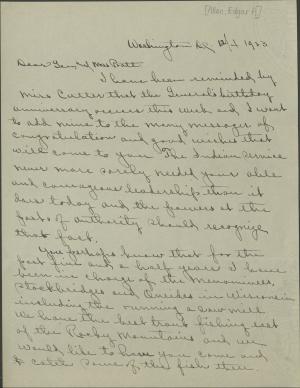 [Allen, Edgar A]
Washington DC 12/1 1923
Dear Gen & Mrs Pratt
I have been reminded by
Miss Cutter that the General's birthday
anniversary occurs this week and I want
to add mine to the many messages of
congratulation and good wishes that
will come to you. The Indian Service
never more sorely needed your able
and courageous leadership than it
does today and the powers at the
posts of authority should recognize
that fact.
You perhaps know that for the
past five and a half years I have
been in charge of the Menominees,
Stockbridges and Oneidas in Wisconsin
including the running a saw mill
We have the best trout fishing east
of the Rocky Mountains and we
would like to have you come and
catch some of the fish there